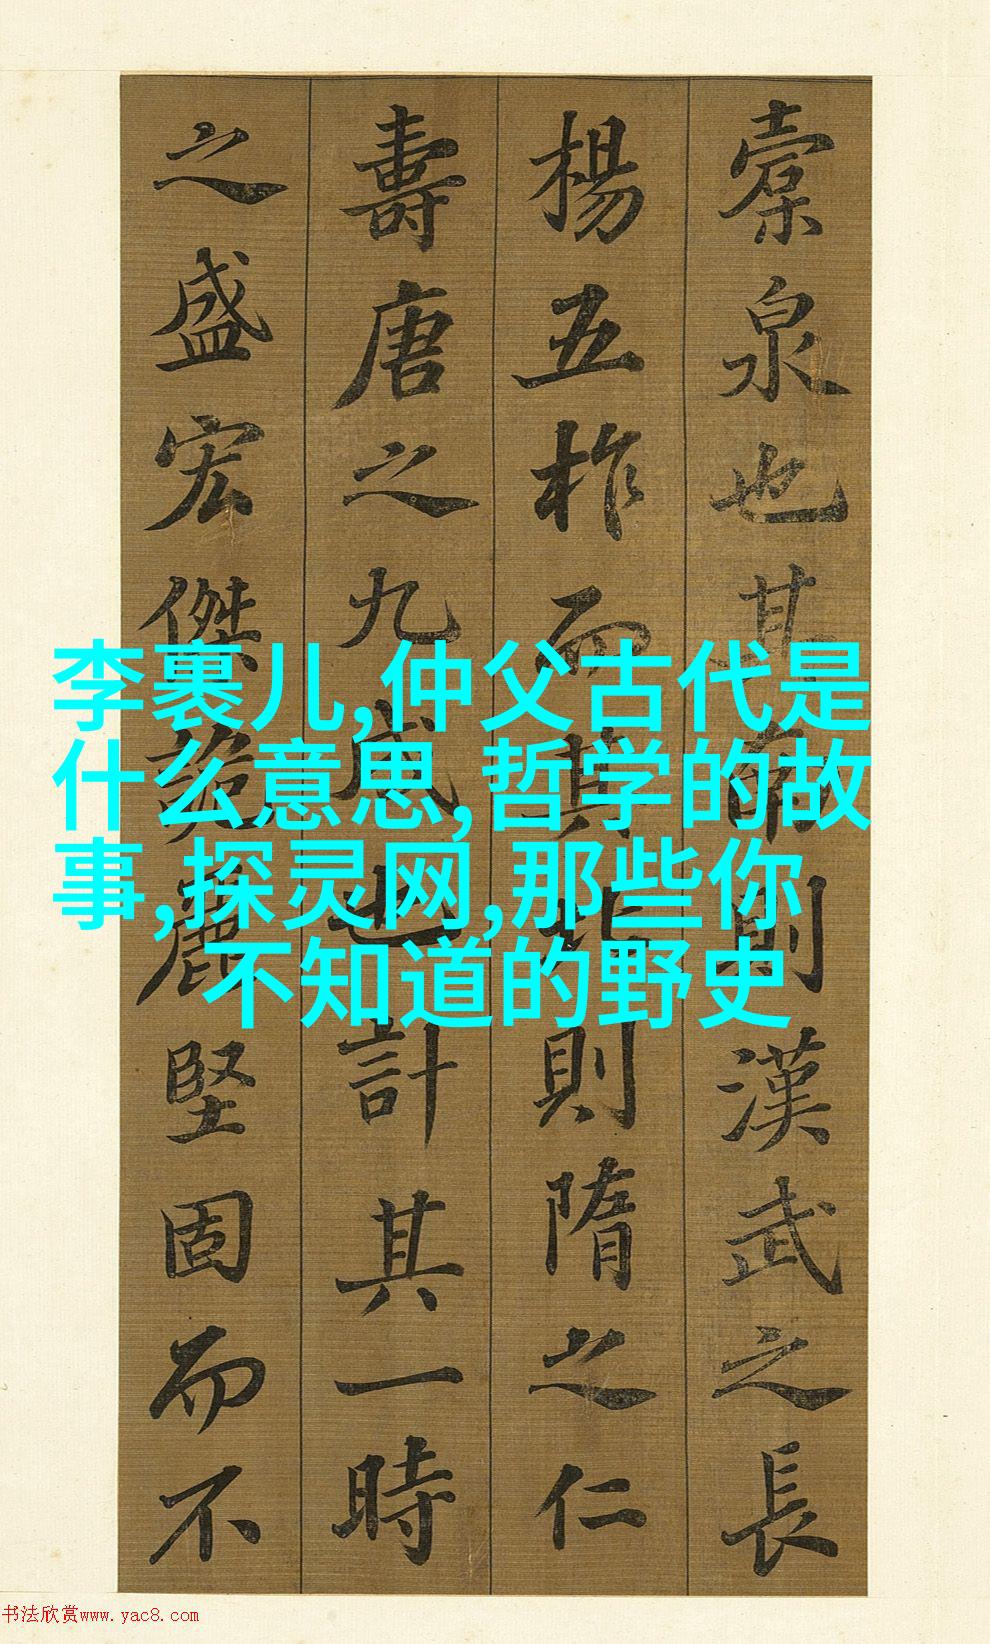 槖泉也其南則漢武之長
楊五柞而其北則隋之仁
壽唐之九成也計其一時
之盛宏傑詭麗堅固而不
李裹儿,仲父古代是
什么意思,哲学的故
事,探灵网,那些你
不知道的野史
书法欣赏www.yac8.com